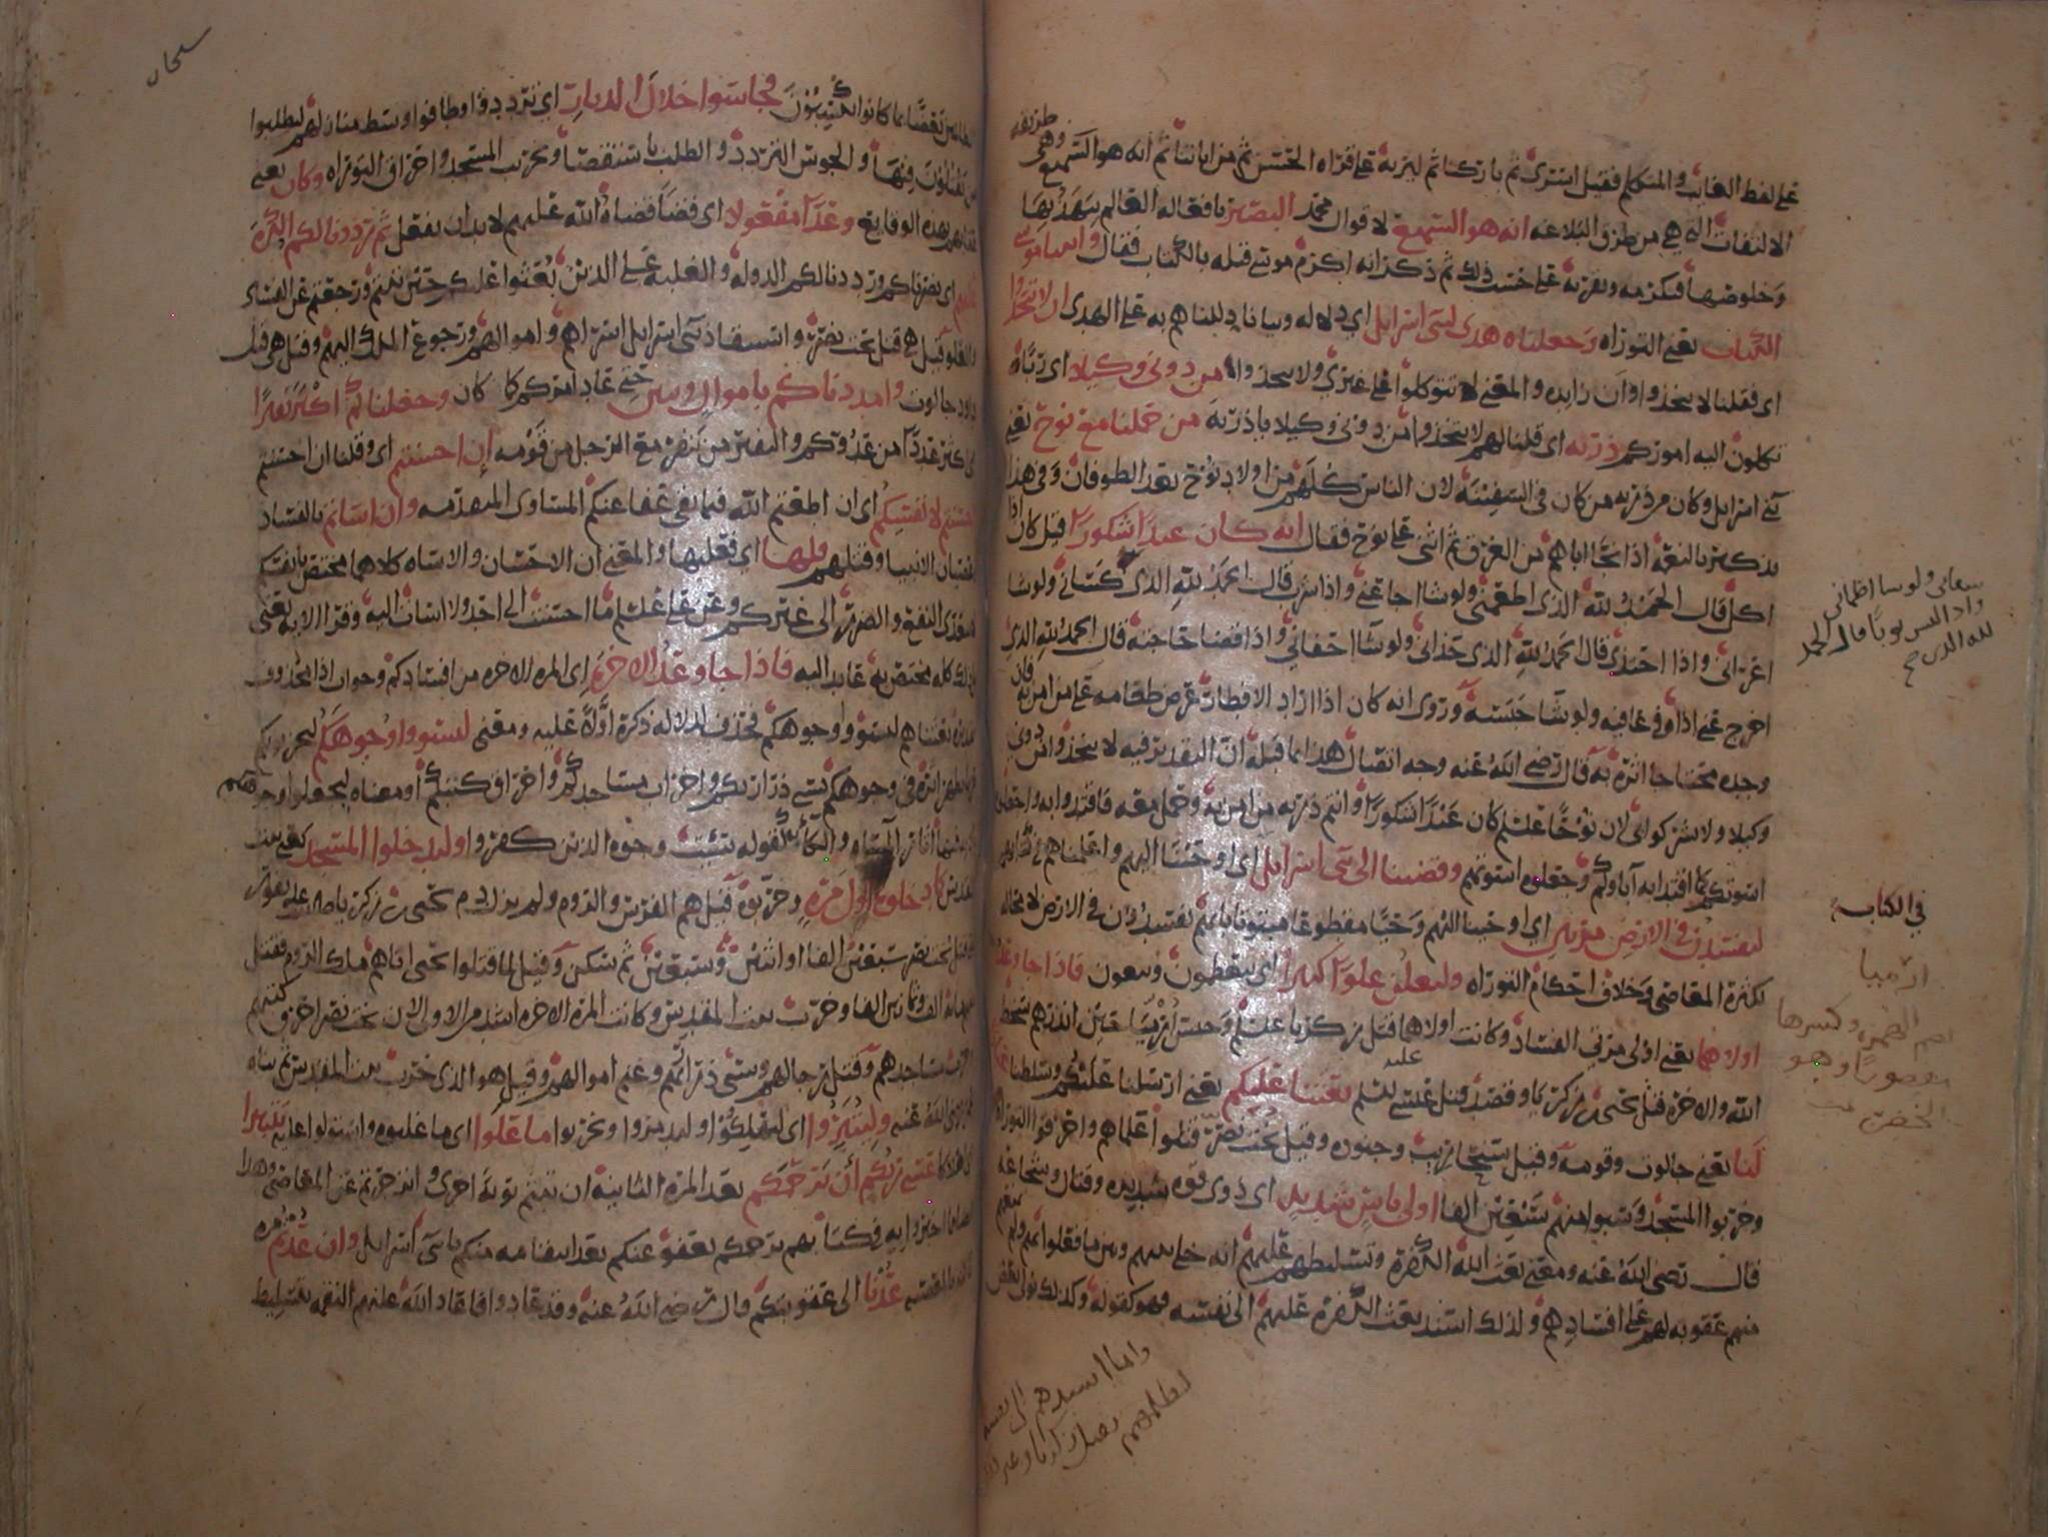 على لفظ الغايب والمتكلم فقيل اسرى ثم باركنا ثم ليريه على قراه الحسن ثم من اياتنا ثم انه هو السميع وهي طريقه
الالتفات التي هي من طرق البلاغه انه هو السميع لاقوال محمد البصير بافعاله العالم بتهذبها
وخلوصها فيكرمه ويقربه على حسب ذلك ثم ذكر انه اكرم موسى قبله بالكتاب فقال واتينا موسى
الكتاب يعني التوراه وجعلناه هدى لبني اسرايل اي دلاله وبيانا دللناهم به على الهدى ان لا تتخذوا
اي فقلنا لا تتخذوا وان زايده والمعنى لا تتوكلوا على غيري ولا تتخذوا من دوني وكيلا اي ربًا
تكلون اليه اموركم ذريه اي قلنا لهم لا تتخذوا من دوني وكيلا يا ذريه من حملنا مع نوح يعني
بني اسرايل وكان من ذريه من كان في السفينه لان الناس كلهم من اولاد نوح بعد الطوفان وفي هذا
تذكير بالنعمه اذ انجا اباهم من الغرق ثم اثنى على نوح فقال انه كان عبدا شكورا قيل كان اذا
اكل قال الحمد لله الذي اطعمني ولو شا اجاعني واذا شرب قال الحمد لله الذي كساني ولو شا
اعراني واذا احتذى قال الحمد لله الذي حذاني ولو شا احفاني واذا قضا حاجته قال الحمد لله الذي
اخرج عني اذاه في عافيه ولو شا حبسه وروى انه كان اذا اراد الافطار عرض طعامه على من امن به فان
وجده محتاجا اثره به قال رضي الله عنه وجه اتصال هذا بما قبله ان التقدير فيه لا تتخذوا من دوني
وكيلا ولا تشركوا بي لان نوحًا عليلم كان عبدا شكورا وانتم ذريه من امن به وحمل معه فاقتدوا به واجعلوا
اسوتكم كما اقتدا به اباوكم وجعلوه اسوتهم وقضينا الى بني اسرايل اي اوحينا اليهم واعلمناهم في كتابهم
لتفسدن في الارض مرتين اي اوحينا اليهم وحيا مقطوعا مبتوتا بانهم يفسدون في الارض لا محاله
لكثره المعاصي وخلاف احكام التوراه ولتعلن علوا كبيرا اي يتعظمون ويبغون فاذا جا وعد
اولاهما يعني اولى مرتي الفساد وكانت اولاهما قتل زكريا عليلم وحبس ارميا حين انذرهم سخط
الله والاخره قتل يحيى بن زكريا وقصد قتل عيسى عليلم بعثنا عليكم يعني ارسلنا عليكم وسلطنا عبادا
لنا يعني جالوت وقومه وقيل سنحاريب وجنوده وقيل بخت نصر قتلوا علماهم واحرقوا التوراه
وخربوا المسجد وسبوا منهم سبعين الفا اولي باس شديد اي ذوي قوه شديده وقتال وشجاعه
قال رضي الله عنه ومعنى بعث الله الكفره وتسليطهم عليهم انه خلى بينهم وبين ما فعلوا بهم ولم يمنعهم
منهم عقوبه لهم على افسادهم ولذلك اسند بعث الكفره عليهم الى نفسه فهو كقوله وكذلك نولي بعض
سقاني ولو شا اظماني
واذا البس ثوبا قال الحمد
لله الذي صح
في الكتاب
ارميا
بضم الهمزه وكسرها
وهو
الخضر
واما اسندهم الى نفسه
لظلمهم بقتل زكريا وغير ذلك
سبحان
الظالمين بعضًا بما كانوا يكسبون فجاسوا خلال الديار اي ترددوا وطافوا وسط منازلهم ليطلبوا
من يقتلون فيها والجوس التردد والطلب باستقصا وتخريب المسجد واحراق التوراه وكان يعني
بهذه الوقايع وعدا مفعولا اي قضا قضاه الله عليهم لا بد ان يفعل ثم رددنا لكم الكره
عليهم اي نصرناكم ورددنا لكم الدوله والغلبه على الذين بعثوا عليكم حين تبتم ورجعتم عن الفساد
والعلو قيل هي قتل بخت نصر واستنقاذ بني اسرايل اسراهم واموالهم ورجوع الملك اليهم وقيل هي قتل
داود جالوت وامددناكم باموال وبنين حتى عاد امركم كما كان وجعلناكم اكثر نفيرا
اي اكثر عددا من عدوكم والنفير من ينفر مع الرجل من قومه ان احسنتم اي وقلنا ان احسنتم
احسنتم لانفسكم اي ان اطعتم الله فيما بقي عفا عنكم المساوي المتقدمه وان اساتم بالفساد
وعصيان الانبيا وقتلهم فلها اي فعليها والمعنى ان الاحسان والاساه كلاهما مختص بانفسكم
لا يتعدى النفع والضرر الى غيركم وعن علي عليلم ما احسنت الى احد ولا اسات اليه وقرا الايه يعني
ان ذلك كله مختص به عايد اليه فاذا جا وعد الاخره اي المره الاخره من افسادكم وجواب اذا محذوف
تقديره بعثناهم ليسووا وجوهكم فحذف لدلاله ذكره اولا عليه ومعنى ليسووا وجوهكم ليحزنوكم
حزنا يظهر اثره في وجوهكم بسبي ذراريكم واخراب مساجدكم واحراق كتبكم او معناه ليجعلوا وجوهكم
باديه فيها اثار المساه والكابه كقوله سيت وجوه الذين كفروا وليدخلوا المسجد يعني بيت
المقدس كما دخلوه اول مره وخربوه قيل هم الفرس والروم ولم يزل دم يحيى بن زكريا عليه يفور
حتى قتل بخت نصر سبعين الفا او اثنين وسبعين ثم سكن وقيل لما قتلوا يحيى اتاهم ملك الروم فقتل
منهم مايه الف وثمانين الفا وخرب بيت المقدس وكانت المره الاخره اشد من الاولى لان بخت نصر احرق كتبهم
واخرب مساجدهم وقتل رجالهم وسبى ذراريهم وغنم اموالهم وقيل هو الذي خرب بيت المقدس ثم بناه
رضي الله عنه وليتبروا اي ليهلكوا وليدمروا ويخربوا ما علوا اي ما غلبوه واستولوا عليه تتبيرا
اي اهلاكا عسى ربكم ان يرحمكم بعد المره الثانيه ان تبتم توبه اخرى وانزجرتم عن المعاصي وهذا
ايضا مما اخبروا به في كتابهم يرحمكم يعفو عنكم بعد انتقامه منكم يا بني اسرايل وان عدتم مره
ثالثه الى المعصيه عدنا الى عقوبتكم قال رضي الله عنه وقد عادوا فاعاد الله عليهم النقمه بتسليط